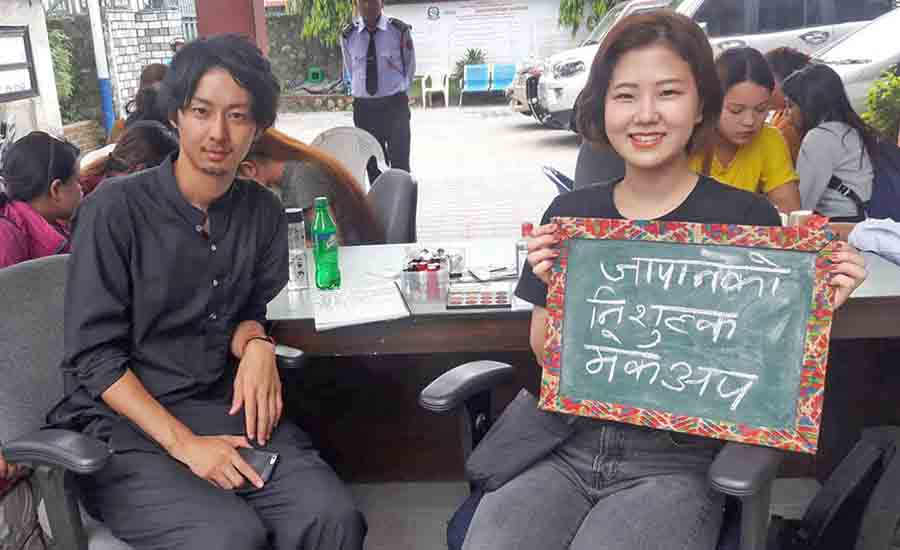 जापानको
निशुल्क
मेकअप